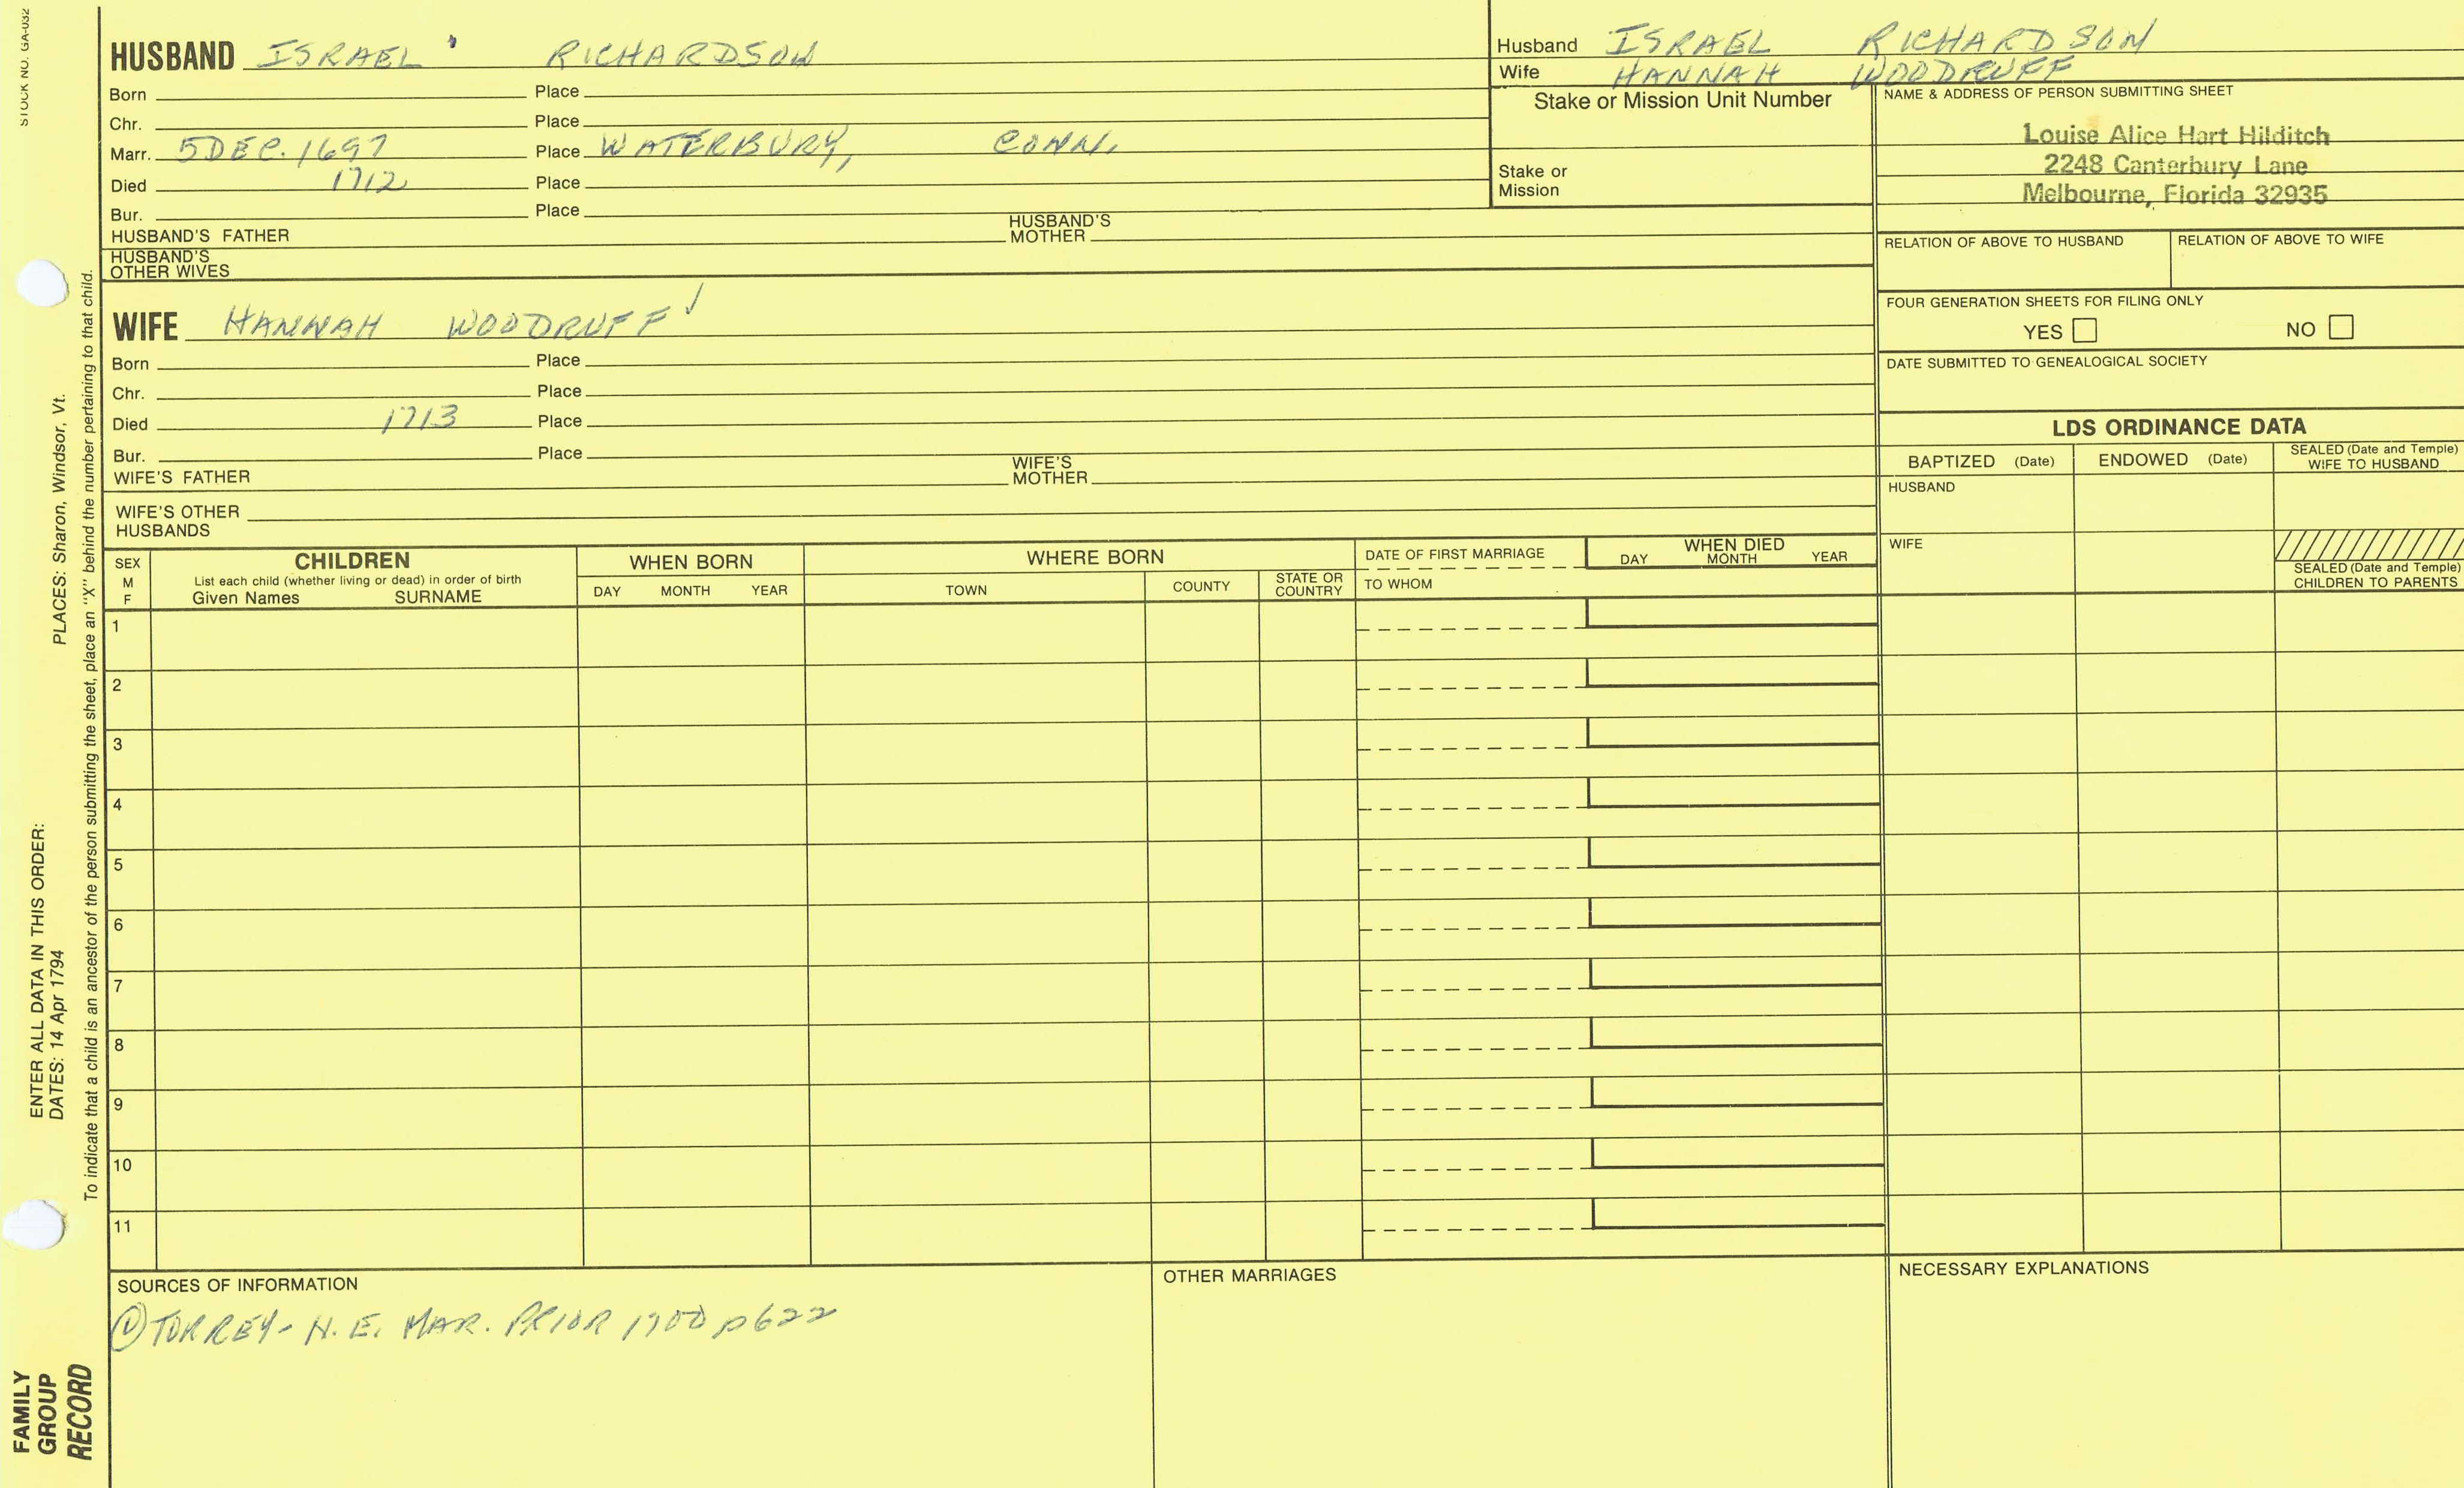 STOCK NO. GA-032
HUSBAND ISRAEL RICHARDSON
Born Place
Chr. Place
Marr. 5 DEC. 1697 Place WATERBURY, CONN.
Died 1712 Place
Bur. Place
HUSBAND'S FATHER HUSBAND'S MOTHER
HUSBAND'S OTHER WIVES
WIFE HANNAH WOODRUFF
Born Place
Chr. Place
Died 1713 Place
Bur. Place
WIFE'S FATHER WIFE'S MOTHER
WIFE'S OTHER HUSBANDS
Husband ISRAEL RICHARDSON
Wife HANNAH WOODRUFF
Stake or Mission Unit Number
Stake or
Mission
NAME & ADDRESS OF PERSON SUBMITTING SHEET
Louise Alice Hart Hilditch
2248 Canterbury Lane
Melbourne, Florida 32935
RELATION OF ABOVE TO HUSBAND RELATION OF ABOVE TO WIFE
FOUR GENERATION SHEETS FOR FILING ONLY
YES NO
DATE SUBMITTED TO GENEALOGICAL SOCIETY
LDS ORDINANCE DATA
BAPTIZED (Date) ENDOWED (Date) SEALED (Date and Temple) WIFE TO HUSBAND
HUSBAND
WIFE
SEALED (Date and Temple)
CHILDREN TO PARENTS
SEX
M
F
CHILDREN
List each child (whether living or dead) in order of birth
Given Names SURNAME
WHEN BORN
DAY MONTH YEAR
WHERE BORN
TOWN COUNTY STATE OR COUNTRY
DATE OF FIRST MARRIAGE
TO WHOM
WHEN DIED
DAY MONTH YEAR
1
2
3
4
5
6
7
8
9
10
11
SOURCES OF INFORMATION
① TORREY - N.E. MAR. PRIOR 1700 p622
OTHER MARRIAGES
NECESSARY EXPLANATIONS
PLACES: Sharon, Windsor, Vt.
ENTER ALL DATA IN THIS ORDER:
DATES: 14 Apr 1794
To indicate that a child is an ancestor of the person submitting the sheet, place an "X" behind the number pertaining to that child.
FAMILY
GROUP
RECORD